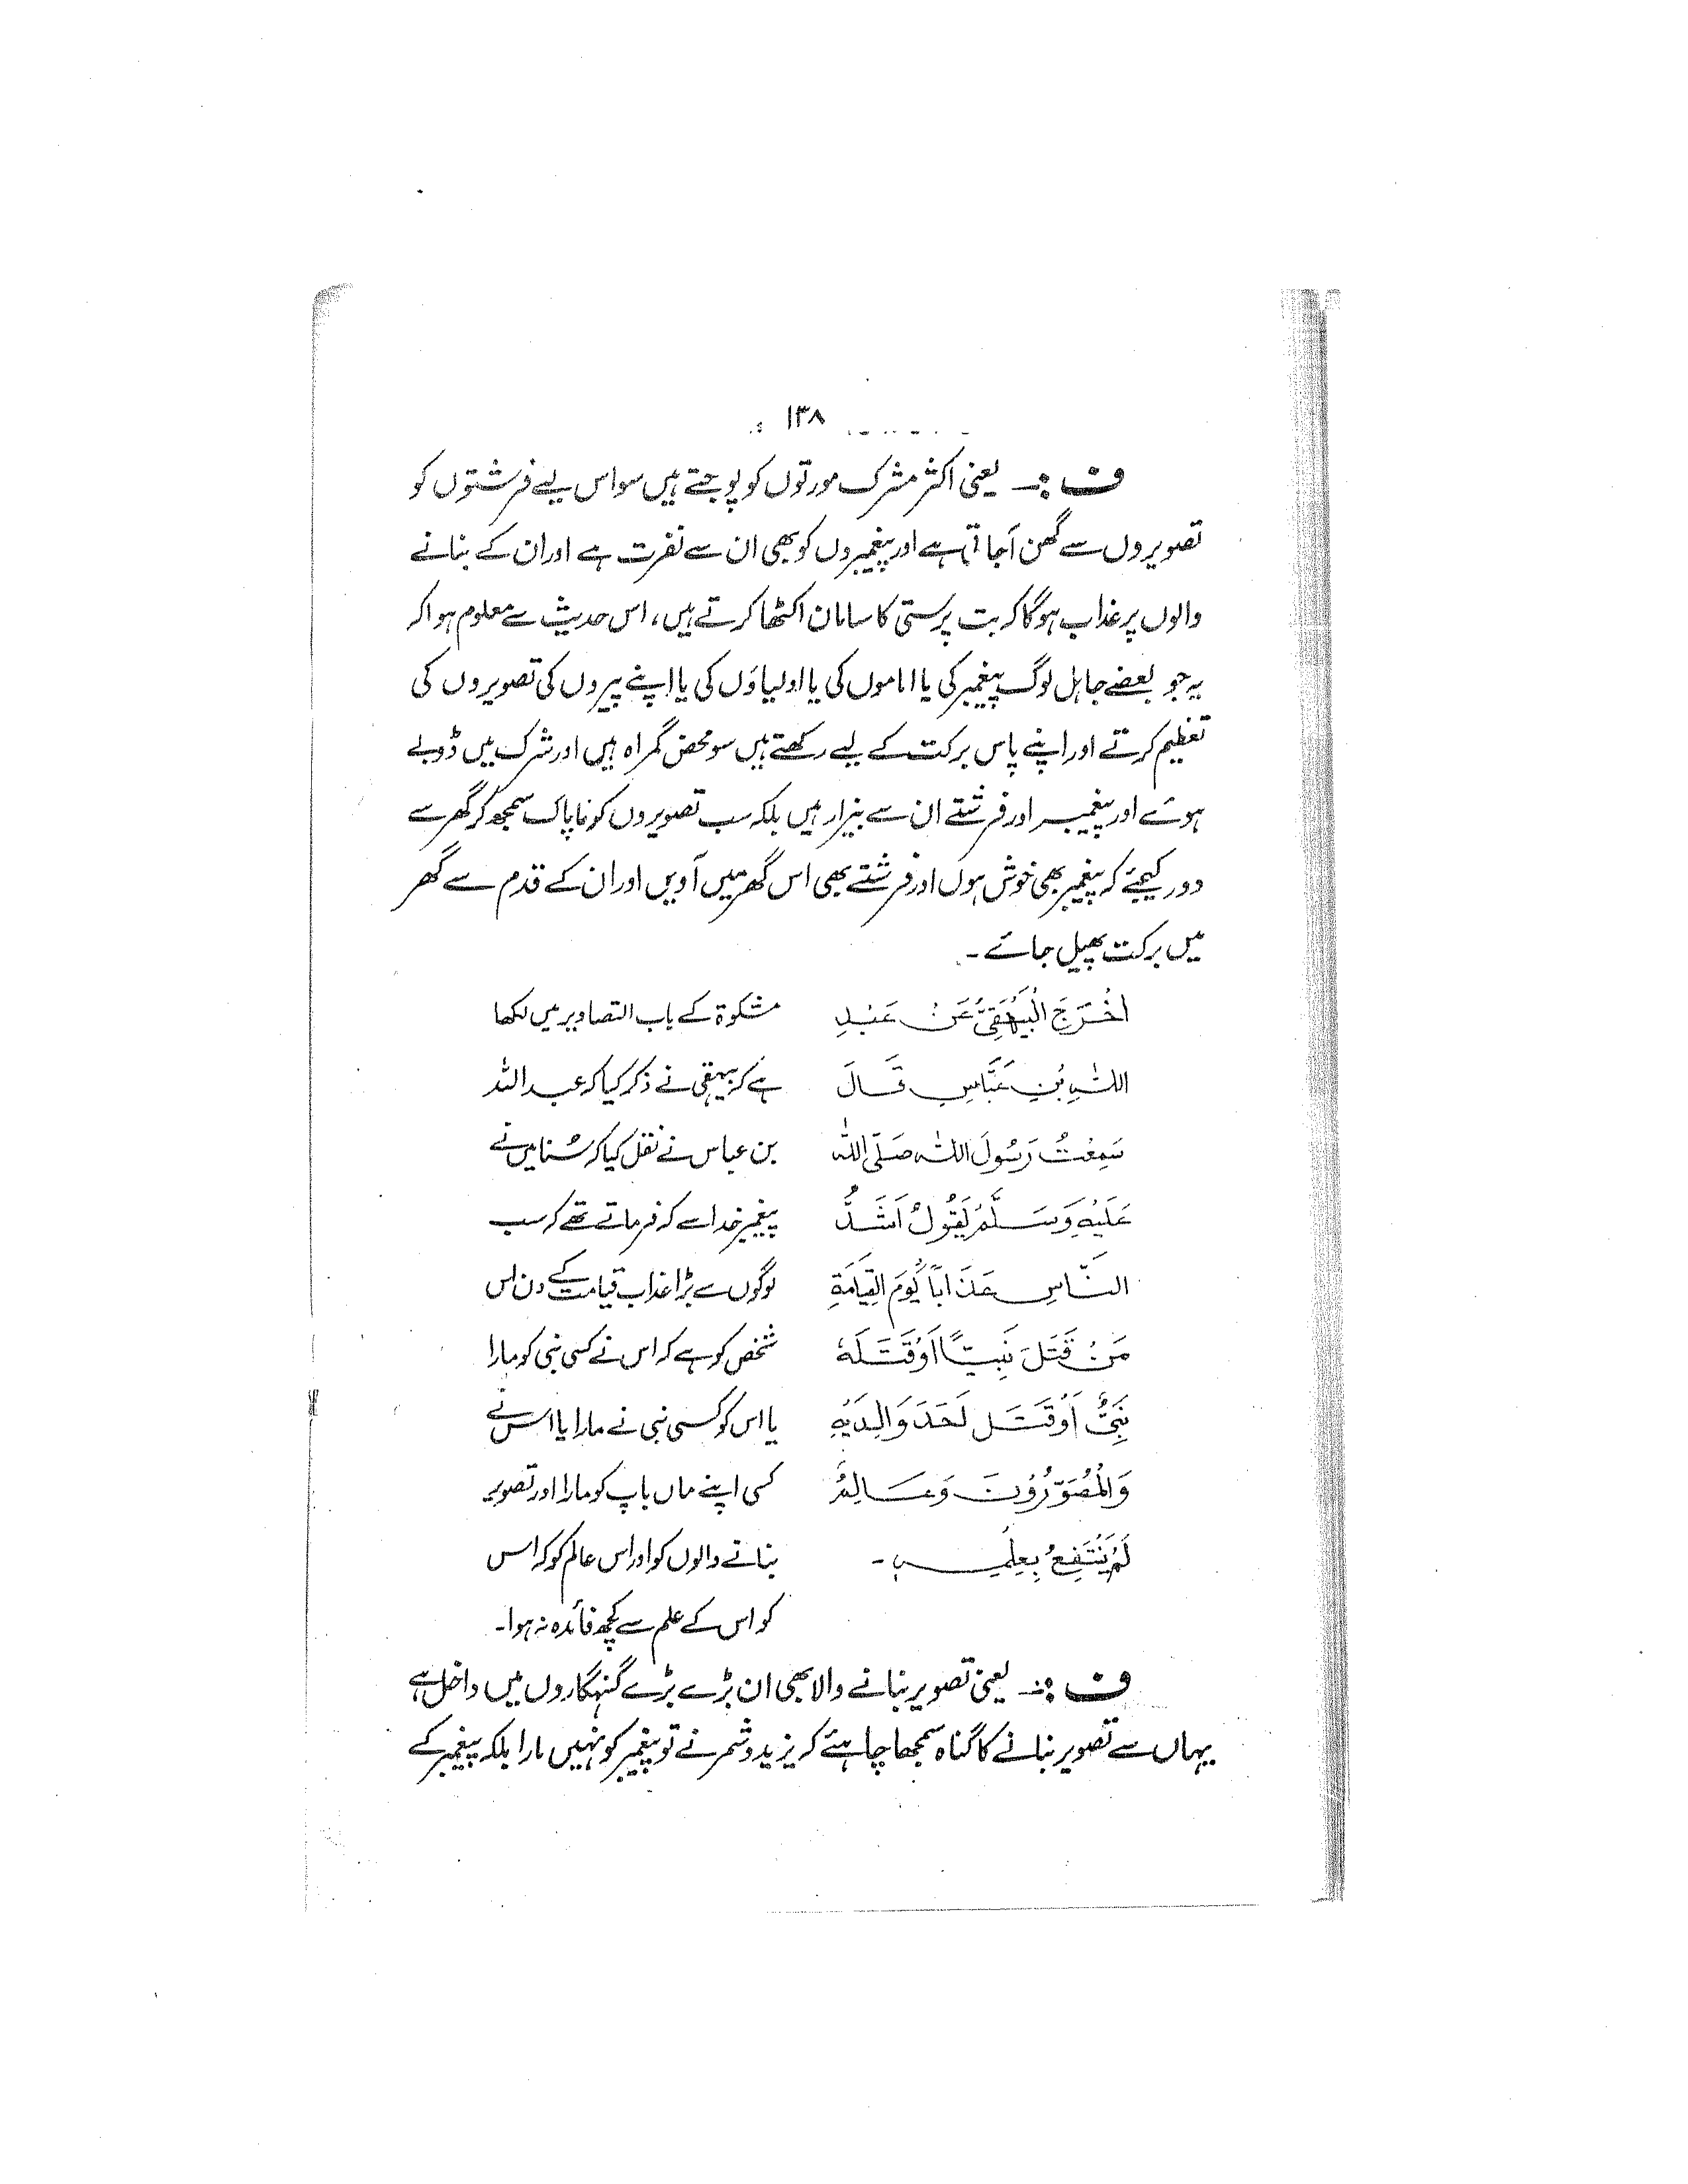 ۱۳۸
ف :۔ یعنی اکثر مشرک مورتوں کو پوجتے ہیں سو اس لیے فرشتوں کو
تصویروں سے گھن آجاتی ہے اور پیغمبروں کو بھی ان سے نفرت ہے اور ان کے بنانے
والوں پر عذاب ہوگا کہ بت پرستی کا سامان اکٹھا کرتے ہیں، اس حدیث سے معلوم ہوا کہ
یہ جو بعضے جاہل لوگ پیغمبر کی یا اماموں کی یا اولیاؤں کی یا اپنے پیروں کی تصویروں کی
تعظیم کرتے اور اپنے پاس برکت کے لیے رکھتے ہیں سو محض گمراہ ہیں اور شرک میں ڈوبے
ہوئے اور پیغمبر اور فرشتے ان سے بیزار ہیں بلکہ سب تصویروں کو ناپاک سمجھ کر گھر سے
دور کیجئے کہ پیغمبر بھی خوش ہوں اور فرشتے بھی اس گھر میں آویں اور ان کے قدم سے گھر
میں برکت پھیل جائے ۔
اَخْرَجَ الْبَيْهَقِيُّ عَنْ عَبْدِ
اللّٰهِ بْنِ عَبَّاسٍ قَالَ
سَمِعْتُ رَسُوْلَ اللّٰهِ صَلَّى اللّٰهُ
عَلَيْهِ وَسَلَّمَ يَقُوْلُ اَشَدُّ
النَّاسِ عَذَابًا يَّوْمَ الْقِيَامَةِ
مَنْ قَتَلَ نَبِيًّا اَوْ قَتَلَهٗ
نَبِيٌّ اَوْ قَتَلَ اَحَدَ وَالِدَيْهِ
وَالْمُصَوِّرُوْنَ وَعَالِمٌ
لَمْ يَنْتَفِعْ بِعِلْمِهٖ ۔
مشکوۃ کے باب التصاویر میں لکھا
ہے کہ بیہقی نے ذکر کیا کہ عبد اللہ
بن عباس نے نقل کیا کہ سُنا میں نے
پیغمبر خدا سے کہ فرماتے تھے کہ سب
لوگوں سے بڑا عذاب قیامت کے دن اس
شخص کو ہے کہ اس نے کسی نبی کو مارا
یا اس کو کسی نبی نے مارا یا اس نے
کسی اپنے ماں باپ کو مارا اور تصویر
بنانے والوں کو اور اس عالم کو کہ اس
کو اس کے علم سے کچھ فائدہ نہ ہوا۔
ف :۔ یعنی تصویر بنانے والا بھی ان بڑے بڑے گنہگاروں میں داخل ہے
یہاں سے تصویر بنانے کا گناہ سمجھا چاہئے کہ یزید و شمر نے تو پیغمبر کو نہیں مارا بلکہ پیغمبر کے